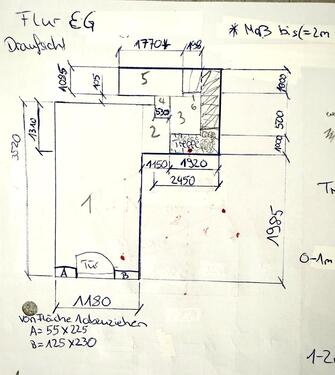 Flur EG
Draufsicht
* Maß bis (=2m
1770*
1085
5
1000
4
530
3
6
2
500
1310
3520
1000
1150
1920
2450
1
1985
Tür
A
B
0-1m
1180
von Fläche 1 abziehen
A = 55 x 225
B = 125 x 230